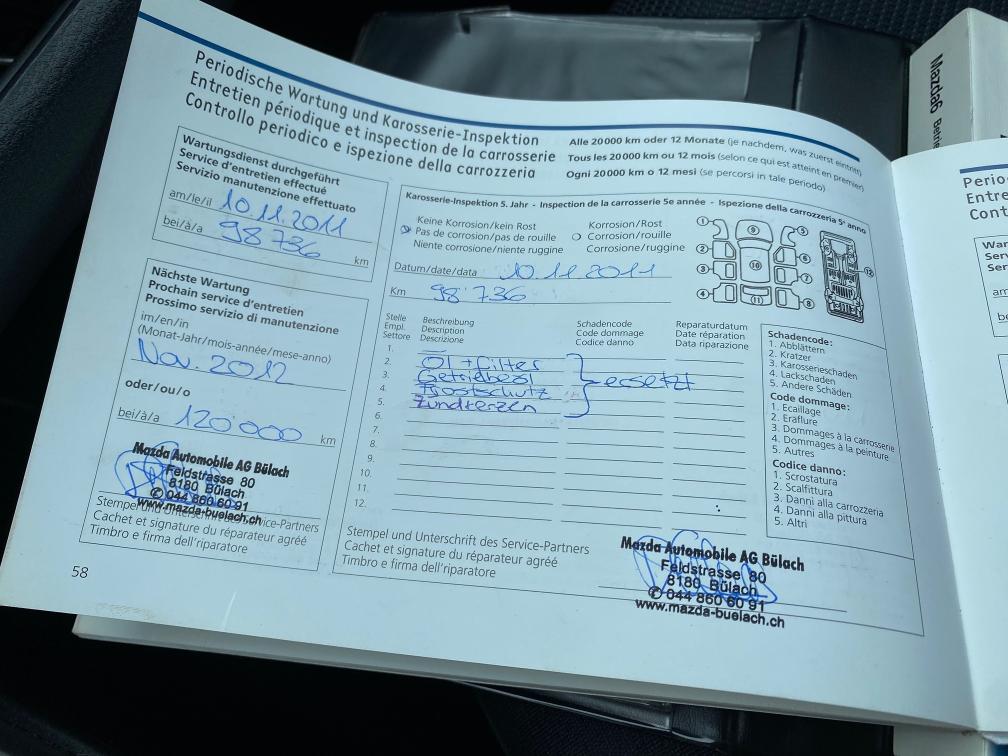 Periodische Wartung und Karosserie-Inspektion
Entretien périodique et inspection de la carrosserie
Controllo periodico e ispezione della carrozzeria
Alle 20 000 km oder 12 Monate (je nachdem, was zuerst eintritt)
Tous les 20 000 km ou 12 mois (selon ce qui est atteint en premier)
Ogni 20 000 km o 12 mesi (se percorsi in tale periodo)
Wartungsdienst durchgeführt
Service d'entretien effectué
Servizio manutenzione effettuato
am/le/il 10.11.2011
bei/à/a 98 736 km
Nächste Wartung
Prochain service d'entretien
Prossimo servizio di manutenzione
im/en/in
(Monat-Jahr/mois-année/mese-anno)
Nov. 2012
oder/ou/o
bei/à/a 120'000 km
Mazda Automobile AG Bülach
Feldstrasse 80
8180 Bülach
✆ 044 860 60 91
www.mazda-buelach.ch
Stempel und Unterschrift des Service-Partners
Cachet et signature du réparateur agréé
Timbro e firma dell'riparatore
58
Karosserie-Inspektion 5. Jahr - Inspection de la carrosserie 5e année - Ispezione della carrozzeria 5° anno
Keine Korrosion/kein Rost
Pas de corrosion/pas de rouille
Niente corrosione/niente ruggine
Korrosion/Rost
Corrosion/rouille
Corrosione/ruggine
Datum/date/data 10 11 2011
Km 98'736
1 2 3 4 5 6 7 8 9 10 11 12
Stelle Beschreibung Schadencode Reparaturdatum
Empl. Description Code dommage Date réparation
Settore Descrizione Codice danno Data riparazione
1.
2. Öl + Filter
3. Getriebeöl ersetzt
4. Frostschutz
5. Zündkerzen
6.
7.
8.
9.
10.
11.
12.
Schadencode:
1. Abblättern
2. Kratzer
3. Karosserieschaden
4. Lackschaden
5. Andere Schäden
Code dommage:
1. Ecaillage
2. Eraflure
3. Dommages à la carrosserie
4. Dommages à la peinture
5. Autres
Codice danno:
1. Scrostatura
2. Scalfittura
3. Danni alla carrozzeria
4. Danni alla pittura
5. Altri
Stempel und Unterschrift des Service-Partners
Cachet et signature du réparateur agréé
Timbro e firma dell'riparatore
Mazda Automobile AG Bülach
Feldstrasse 80
8180 Bülach
✆ 044 860 60 91
www.mazda-buelach.ch
Mazda6